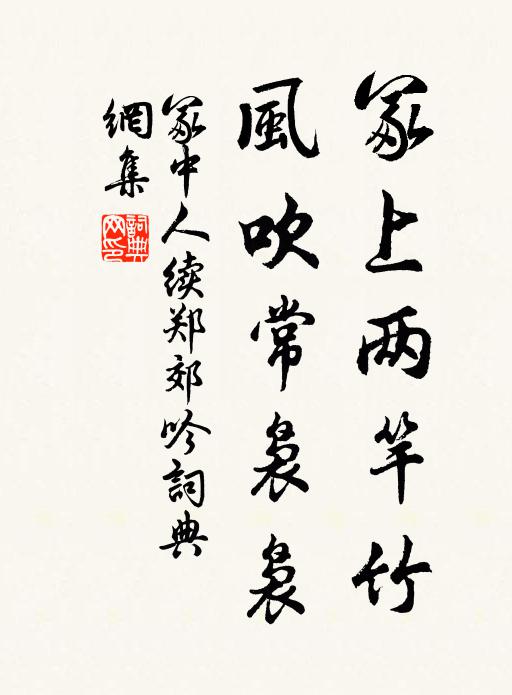 冢上两竿竹
風吹常裊裊
冢中人续郑郊吟詞典
網集
詞典
网印